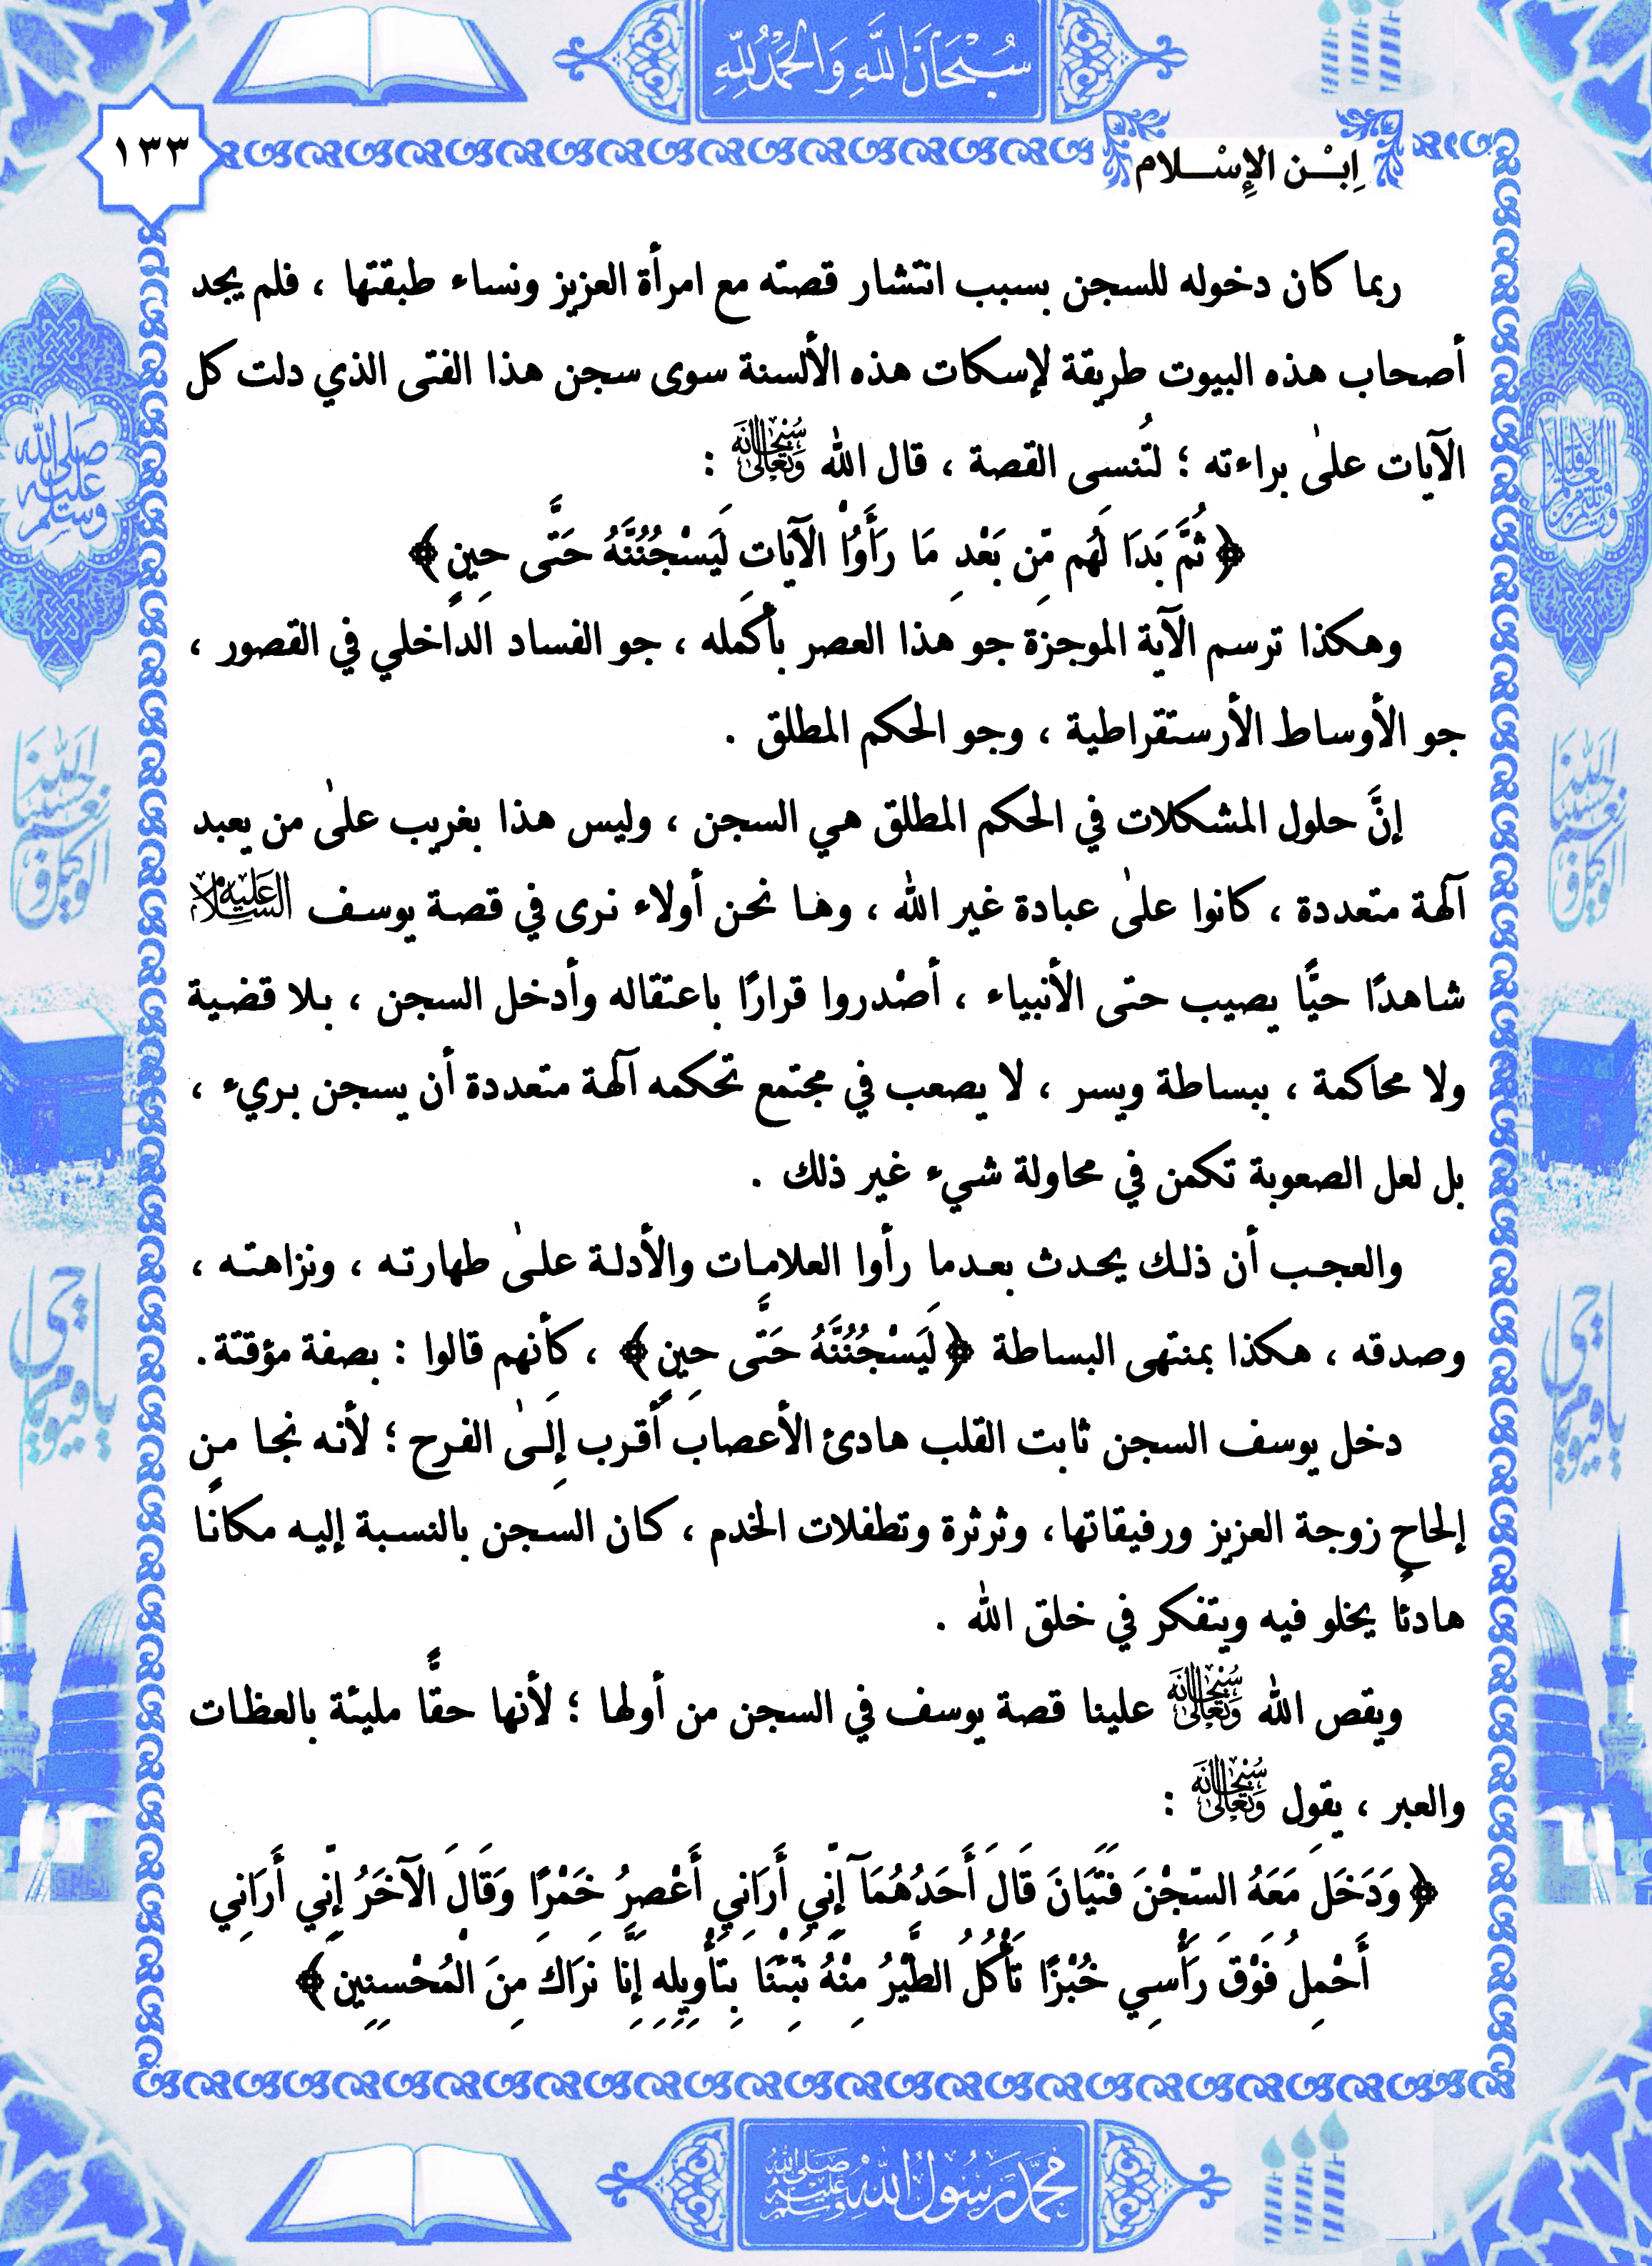 سُبْحَانَ اللَّهِ وَالْحَمْدُ لِلَّهِ
١٣٣
اِبْـن الإِسْـلام
ربما كان دخوله للسجن بسبب انتشار قصته مع امرأة العزيز ونساء طبقتها ، فلم يجد
أصحاب هذه البيوت طريقة لإسكات هذه الألسنة سوى سجن هذا الفتى الذي دلت كل
الآيات علىٰ براءته ؛ لتُنسى القصة ، قال الله سُبْحَانَهُ وَتَعَالَى :
﴿ ثُمَّ بَدَا لَهُم مِّن بَعْدِ مَا رَأَوُاْ الْآيَاتِ لَيَسْجُنُنَّهُ حَتَّى حِينٍ﴾
وهكذا ترسم الآية الموجزة جو هذا العصر بأكمله ، جو الفساد الداخلي في القصور ،
جو الأوساط الأرستقراطية ، وجو الحكم المطلق .
إنَّ حلول المشكلات في الحكم المطلق هي السجن ، وليس هذا بغريب علىٰ من يعبد
آلهة متعددة ، كانوا علىٰ عبادة غير الله ، وها نحن أولاء نرى في قصة يوسف عَلَيْهِ السَّلَام
شاهدًا حيًّا يصيب حتى الأنبياء ، أصْدروا قرارًا باعتقاله وأدخل السجن ، بلا قضية
ولا محاكمة ، ببساطة ويسر ، لا يصعب في مجتمع تحكمه آلهة متعددة أن يسجن بريء ،
بل لعل الصعوبة تكمن في محاولة شيء غير ذلك .
والعجب أن ذلك يحدث بعدما رأوا العلامات والأدلة علىٰ طهارته ، ونزاهته ،
وصدقه ، هكذا بمنتهى البساطة ﴿ لَيَسْجُنُنَّهُ حَتَّى حِينٍ﴾ ، كأنهم قالوا : بصفة مؤقتة .
دخل يوسف السجن ثابت القلب هادئ الأعصاب أقرب إلىٰ الفرح ؛ لأنه نجا من
إلحاح زوجة العزيز ورفيقاتها، وثرثرة وتطفلات الخدم ، كان السجن بالنسبة إليه مكانًا
هادئًا يخلو فيه ويتفكر في خلق الله .
ويقص الله سُبْحَانَهُ وَتَعَالَى علينا قصة يوسف في السجن من أولها ؛ لأنها حقًّا مليئة بالعظات
والعبر ، يقول سُبْحَانَهُ وَتَعَالَى :
﴿ وَدَخَلَ مَعَهُ السِّجْنَ فَتَيَانَ قَالَ أَحَدُهُمَآ إِنِّي أَرَانِي أَعْصِرُ خَمْرًا وَقَالَ الْآخَرُ إِنِّي أَرَانِي
أَحْمِلُ فَوْقَ رَأْسِي خُبْزًا تَأْكُلُ الطَّيْرُ مِنْهُ نَبِّئْنَا بِتَأْوِيلِهِ إِنَّا نَرَاكَ مِنَ الْمُحْسِنِينِ﴾
صلى الله عليه وسلم
حسبنا الله ونعم الوكيل
يا حي يا قيوم
مُحَمَّد رَسُولُ اللَّهِ صلى الله عليه وسلم